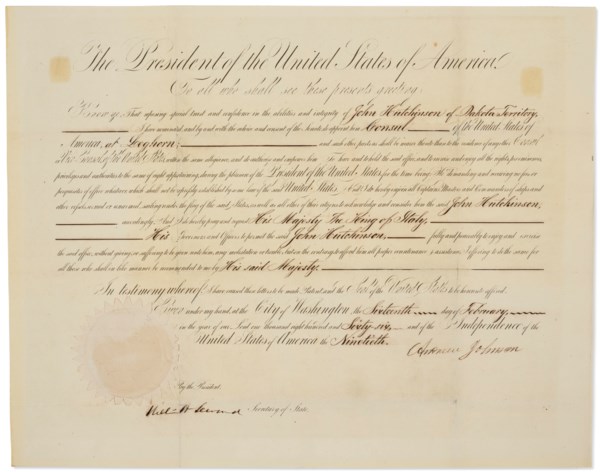 The President of the United States of America,
To all who shall see these presents greeting
Know ye, That reposing special trust and confidence in the abilities and integrity of John Hutchinson of Dakota Territory,
I have nominated, and by and with the advice and consent of the Senate do appoint him Consul of the United States of
America, at Leghorn, and such other parts as shall be nearer thereto than to the residence of any other Consul
the same allegiance, and do authorize and empower him to have and to hold the said office, and to exercise and enjoy all the rights, pre-eminences,
privileges and authorities to the same of right appertaining during the pleasure of the President of the United States for the time being. He demanding and receiving no fees or
perquisites of office whatever which shall not be expressly established by some law of the said United States. And I do hereby enjoin all Captains Masters and Commanders of ships and
other vessels, armed or unarmed sailing under the flag of the said States, as well as all other of their citizens to acknowledge and consider him the said John Hutchinson,
accordingly. And I do hereby pray and request His Majesty The King of Italy,
His Governors and Officers to permit the said John Hutchinson, fully and peaceably to enjoy and exercise
the said office, without giving, or suffering to be given unto him, any molestation or trouble, but on the contrary to afford him all proper countenance and assistance. I offering to do the same for
all those who shall in like manner be recommended to me by His said Majesty.
In testimony whereof I have caused these letters to be made Patent and the Seal of the United States to be hereunto affixed.
Given under my hand at the City of Washington, the Sixteenth day of February
in the year of our Lord one thousand eight hundred and Sixty-six, and of the Independence of the
United States of America, the Ninetieth.
Andrew Johnson
By the President.
William H Seward Secretary of State.